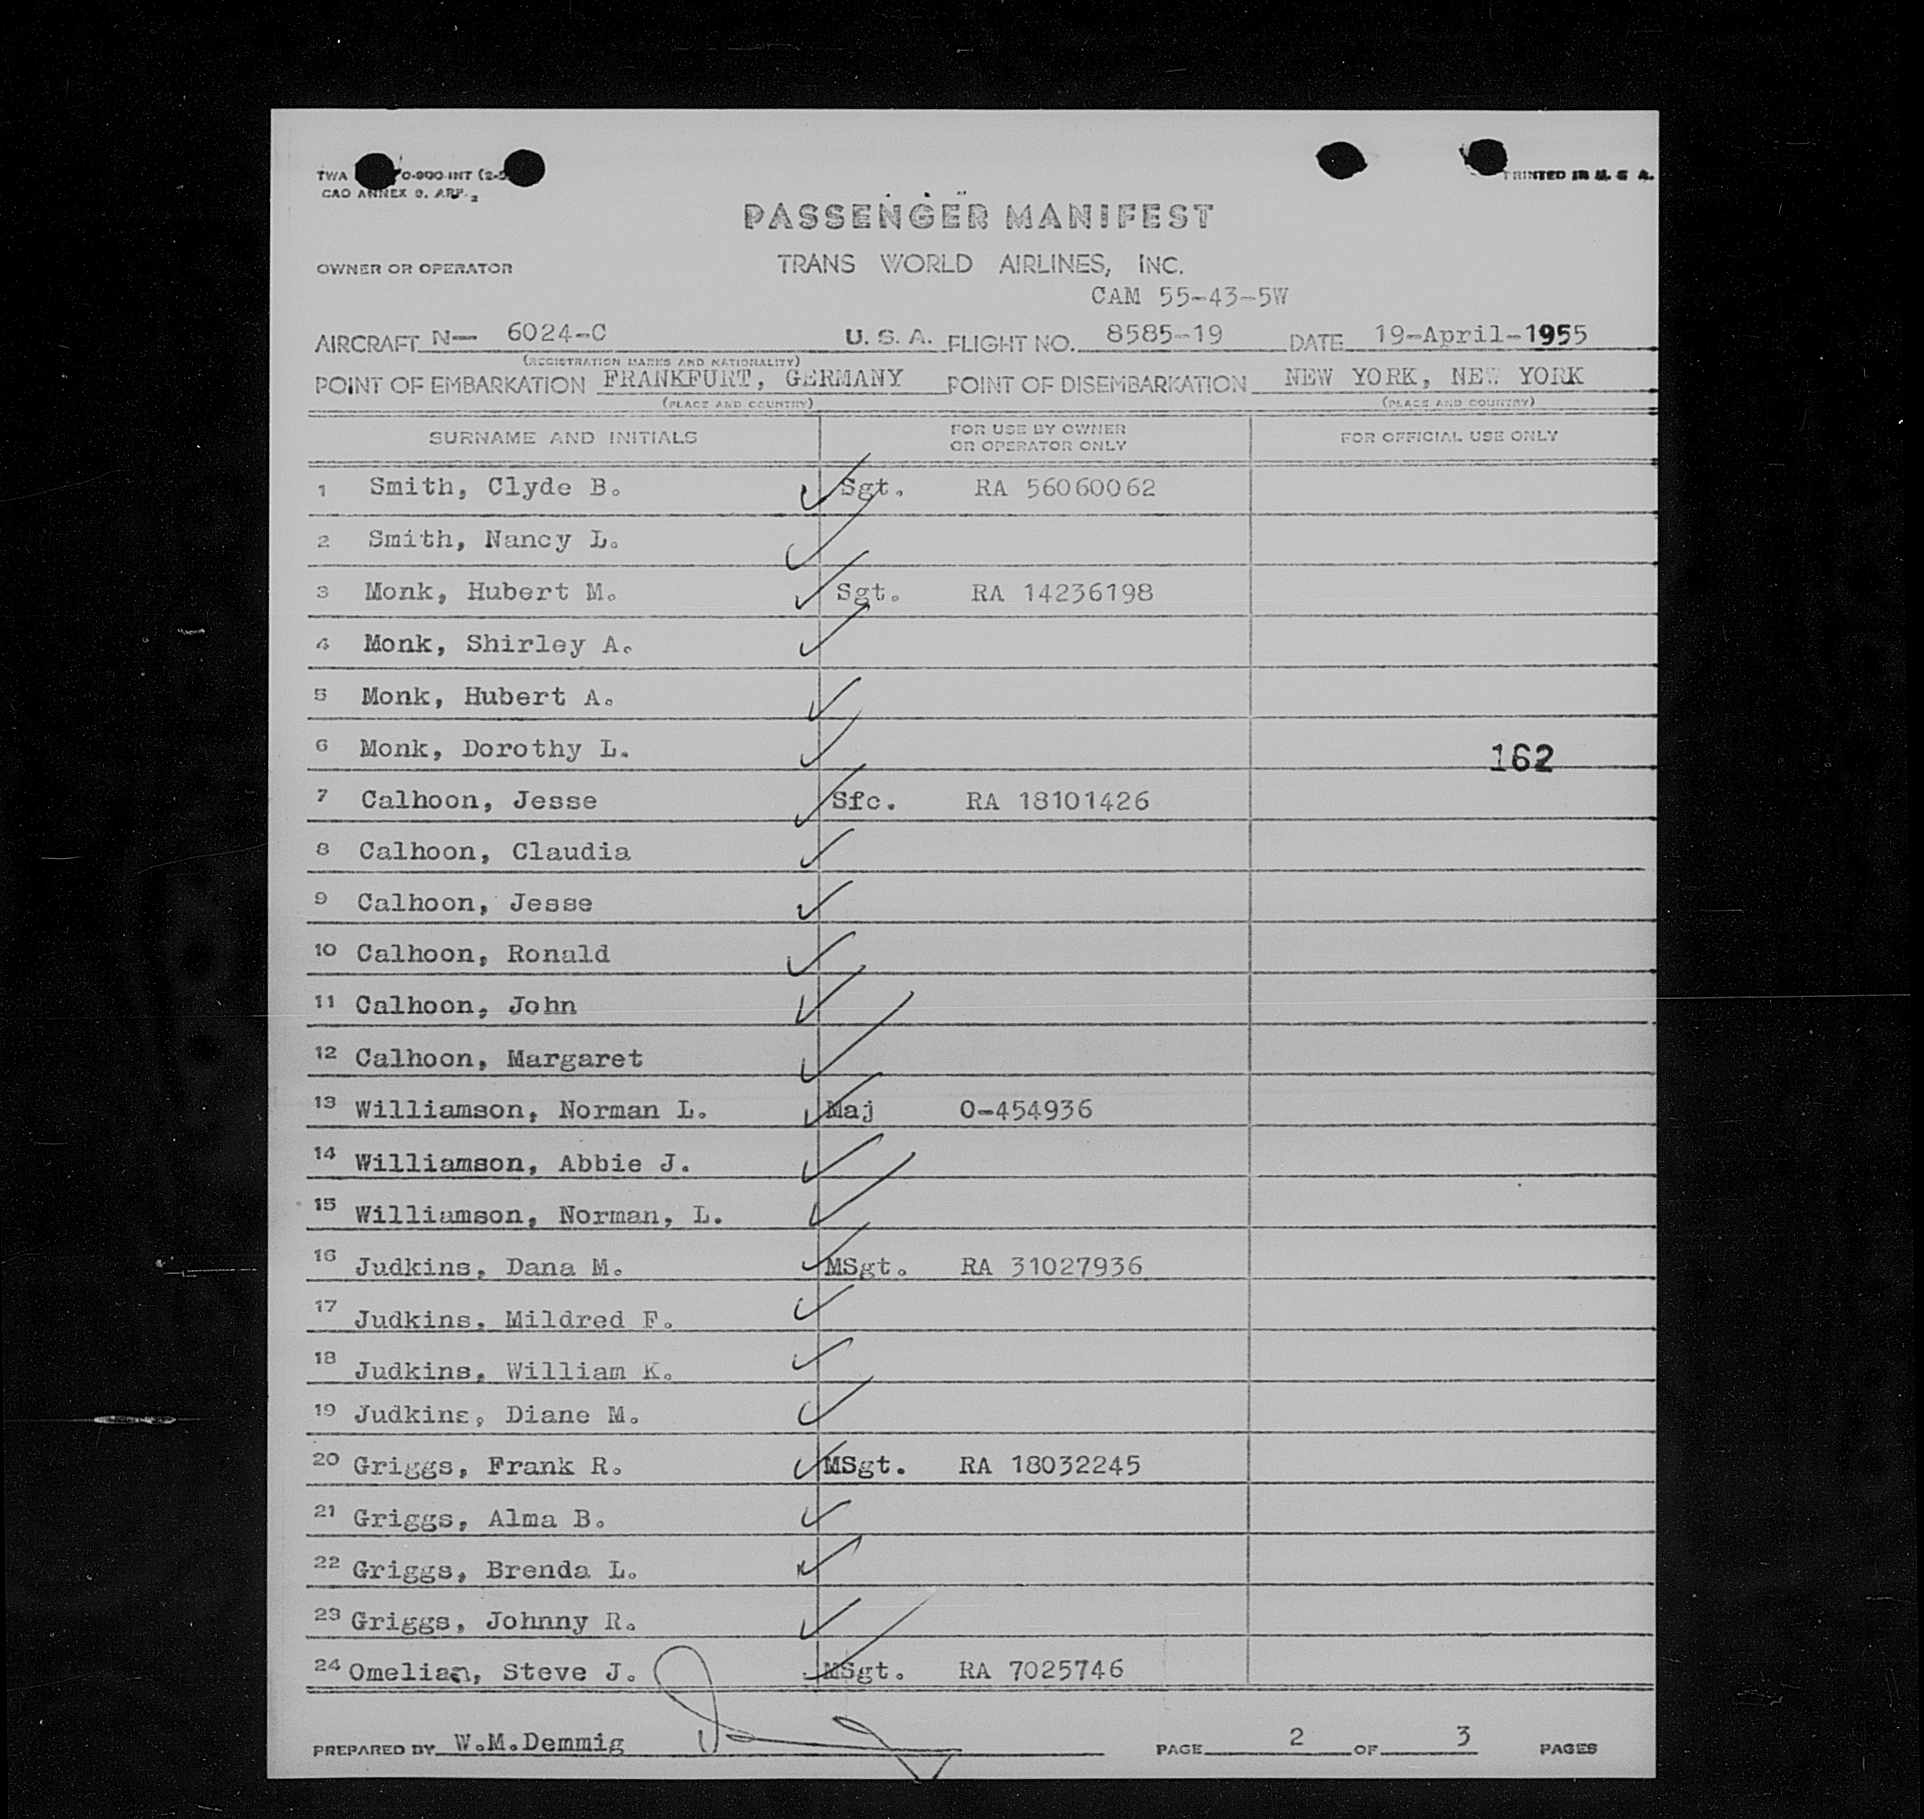 TWA 0-900-INT (2-5
CAO ANNEX 9, APP. 2
PRINTED IN U. S. A.
PASSENGER MANIFEST
OWNER OR OPERATOR TRANS WORLD AIRLINES, INC.
CAM 55-43-5W
AIRCRAFT N— 6024-C U. S. A. FLIGHT NO. 8585-19 DATE 19-April-1955
(REGISTRATION MARKS AND NATIONALITY)
POINT OF EMBARKATION FRANKFURT, GERMANY POINT OF DISEMBARKATION NEW YORK, NEW YORK
(PLACE AND COUNTRY) (PLACE AND COUNTRY)
SURNAME AND INITIALS FOR USE BY OWNER OR OPERATOR ONLY FOR OFFICIAL USE ONLY
1 Smith, Clyde B. Sgt. RA 56060062
2 Smith, Nancy L.
3 Monk, Hubert M. Sgt. RA 14236198
4 Monk, Shirley A.
5 Monk, Hubert A.
6 Monk, Dorothy L. 162
7 Calhoon, Jesse Sfc. RA 18101426
8 Calhoon, Claudia
9 Calhoon, Jesse
10 Calhoon, Ronald
11 Calhoon, John
12 Calhoon, Margaret
13 Williamson, Norman L. Maj O-454936
14 Williamson, Abbie J.
15 Williamson, Norman, L.
16 Judkins, Dana M. MSgt. RA 31027936
17 Judkins, Mildred F.
18 Judkins, William K.
19 Judkins, Diane M.
20 Griggs, Frank R. MSgt. RA 18032245
21 Griggs, Alma B.
22 Griggs, Brenda L.
23 Griggs, Johnny R.
24 Omelian, Steve J. MSgt. RA 7025746
PREPARED BY W.M.Demmig PAGE 2 OF 3 PAGES